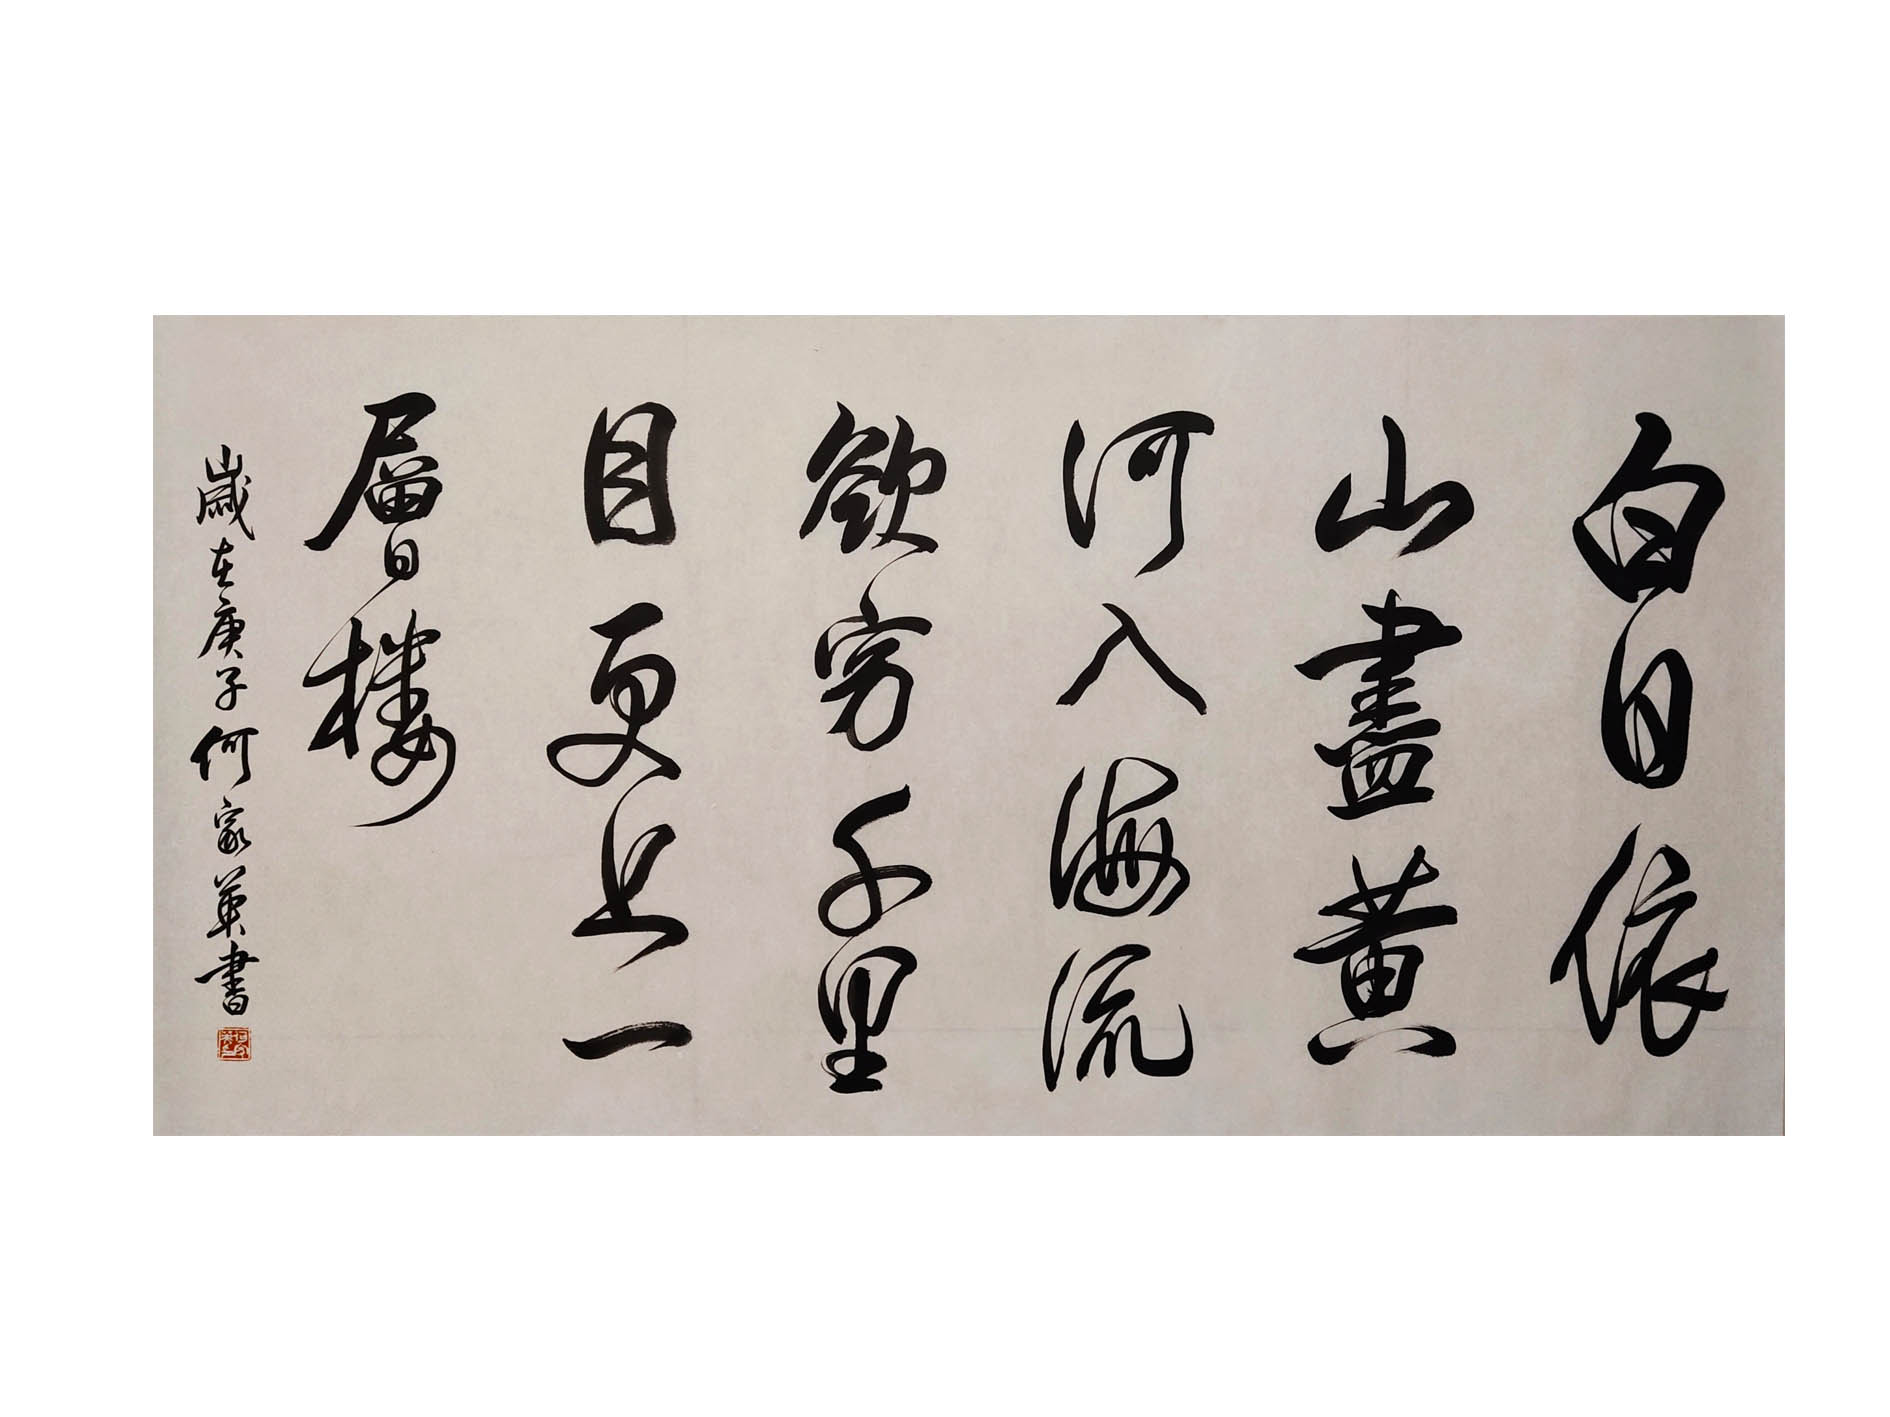 白日依
山盡黄
河入海流
欲窮千里
目更上一
層樓
歲在庚子何家英書